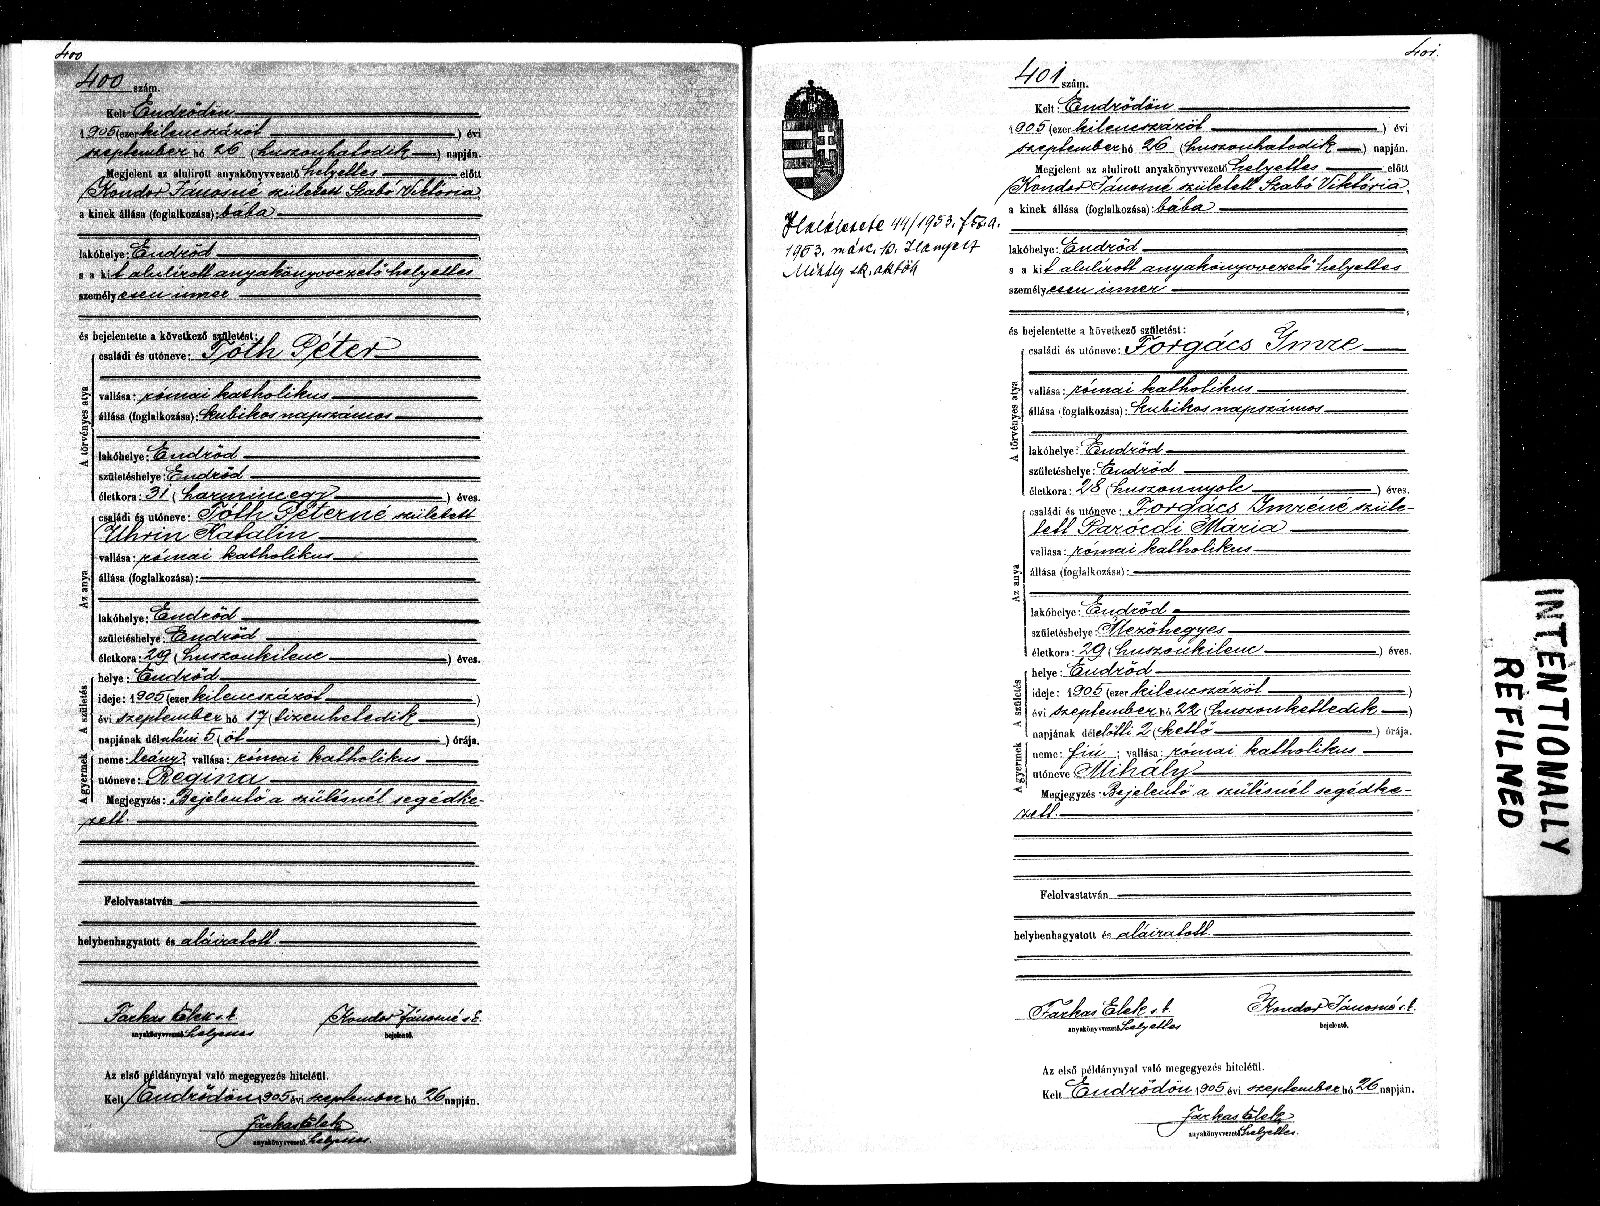 400
400 szám.
Kelt Endrődön
1905 (ezer kilencszázöt) évi
szeptember hó 26 (huszonhatodik) napján.
Megjelent az alulirott anyakönyvvezető helyettes előtt
Kondor Jánosné született Szabó Viktória,
a kinek állása (foglalkozása): bába
lakóhelye: Endrőd
s a kit alulírott anyakönyvvezető helyettes
személyesen ismer
és bejelentette a következő születést:
A törvényes atya
családi és utóneve: Tóth Péter
vallása: római katholikus
állása (foglalkozása): kubikos napszámos
lakóhelye: Endrőd
születéshelye: Endrőd
életkora: 31 (harmincegy) éves.
Az anya
családi és utóneve: Tóth Péterné született
Uhrin Katalin
vallása: római katholikus
állása (foglalkozása):
lakóhelye: Endrőd
születéshelye: Endrőd
életkora: 29 (huszonkilenc) éves.
A születés
helye: Endrőd
ideje: 1905 (ezer kilencszázöt)
évi szeptember hó 17 (tizenhetedik)
napjának délutáni 5 (öt) órája.
A gyermek
neme: leány; vallása: római katholikus
utóneve: Regina
Megjegyzés: Bejelentő a szülésnél segédke-
zett.
Felolvastatván
helybenhagyatott és aláiratott.
Farkas Elek s.k. Kondor Jánosné s.k.
anyakönyvvezető helyettes bejelentő.
Az első példánynyal való megegyezés hiteléül.
Kelt Endrődön, 1905 évi szeptember hó 26 napján.
Farkas Elek
anyakönyvvezető helyettes
401.
401 szám.
Kelt: Endrődön
1905 (ezer kilencszázöt) évi
szeptember hó 26 (huszonhatodik) napján.
Megjelent az alulirott anyakönyvvezető helyettes előtt
Kondor Jánosné született Szabó Viktória,
a kinek állása (foglalkozása): bába
lakóhelye: Endrőd
s a kit alulírott anyakönyvvezető helyettes
személyesen ismer
44/1953.
1953. márc. 10.
és bejelentette a következő születést:
A törvényes atya
családi és utóneve: Forgács Imre
vallása: római katholikus
állása (foglalkozása): kubikos napszámos
lakóhelye: Endrőd
születéshelye: Endrőd
életkora: 28 (huszonnyolc) éves.
Az anya
családi és utóneve: Forgács Imréné szüle-
tett Parócai Mária
vallása: római katholikus
állása (foglalkozása):
lakóhelye: Endrőd
születéshelye: Mezőhegyes
életkora: 29 (huszonkilenc) éves.
A születés
helye: Endrőd
ideje: 1905 (ezer kilencszázöt)
évi szeptember hó 22 (huszonkettedik)
napjának délelőtti 2 (kettő) órája.
A gyermek
neme: fiú; vallása: római katholikus
utóneve Mihály
Megjegyzés: Bejelentő a szülésnél segédke-
zett.
Felolvastatván
helybenhagyatott és aláiratott.
Farkas Elek s.k. Kondor Jánosné s.k.
anyakönyvvezető helyettes bejelentő.
Az első példánynyal való megegyezés hiteléül.
Kelt Endrődön, 1905 évi szeptember hó 26 napján.
Farkas Elek
anyakönyvvezető helyettes.
INTENTIONALLY
REFILMED